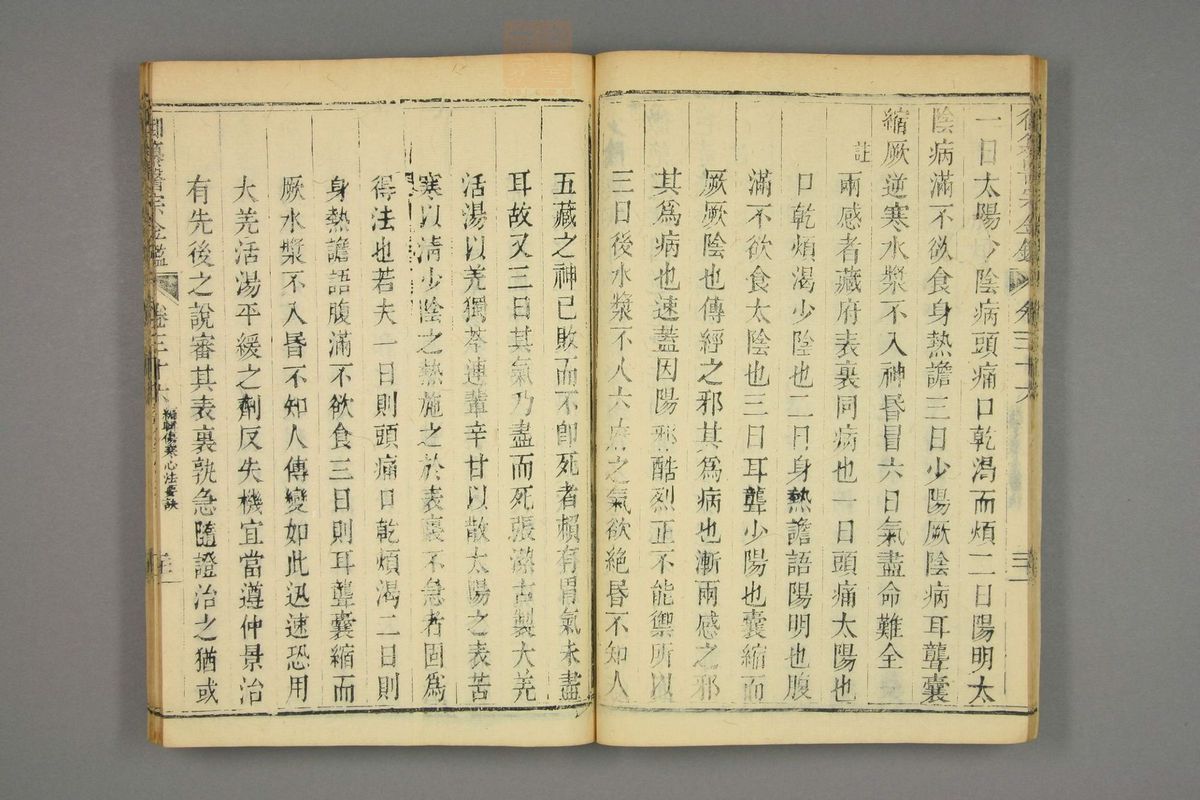 一日太陽少陰病頭痛口乾渴而煩二日陽明太
陰病滿不欲食身熱譫三日少陽厥陰病耳聾囊
縮厥逆寒水漿不入神昏冒六日氣盡命難全
註
兩感者藏府表裏同病也一日頭痛太陽也
口乾煩渴少陰也二日身熱譫語陽明也腹
滿不欲食太陰也三日耳聾少陽也囊縮而
厥厥陰也傳經之邪其為病也漸兩感之邪
其為病也速蓋因陽邪酷烈正不能禦所以
三日後水漿不入六府之氣欲絕昏不知人
五藏之神已敗而不卽死者賴有胃氣未盡
耳故又三日其氣乃盡而死張潔古製大羌
活湯以羌獨苓連輩辛甘以散太陽之表苦
寒以清少陰之熱施之於表裏不急者固為
得法也若夫一日則頭痛口乾煩渴二日則
身熱譫語腹滿不欲食三日則耳聾囊縮而
厥水漿不入昏不知人傳變如此迅速恐用
大羌活湯平緩之劑反失機宜當遵仲景治
有先後之說審其表裏孰急隨證治之猶或
御纂醫宗金鑑 卷三十六 編輯傷寒心法要訣